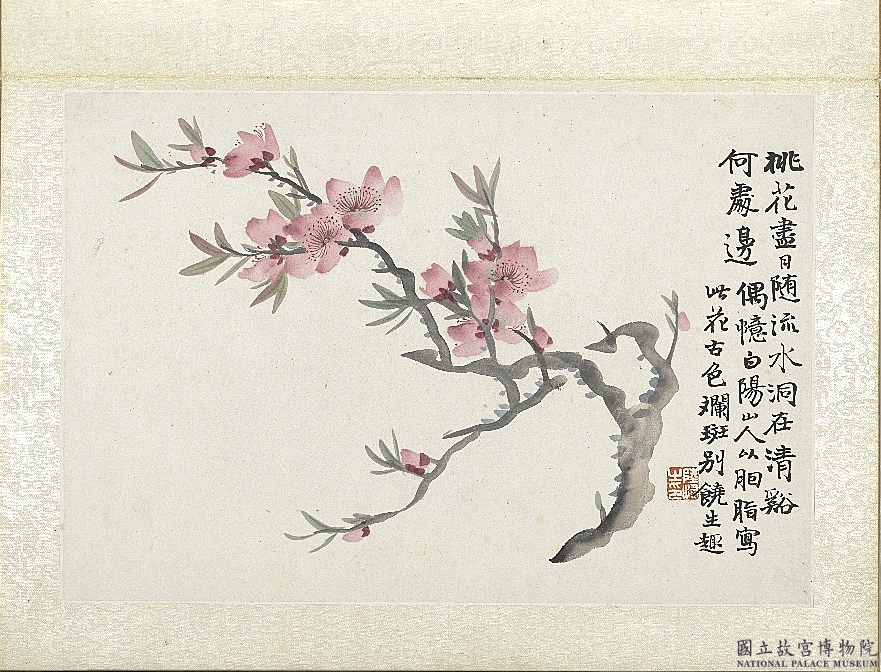 桃花盡日随流水洞在清谿
何處邊 偶憶白陽山人以胭脂寫
此花古色斕斑別饒生趣
國立故宮博物院
NATIONAL PALACE MUSEUM